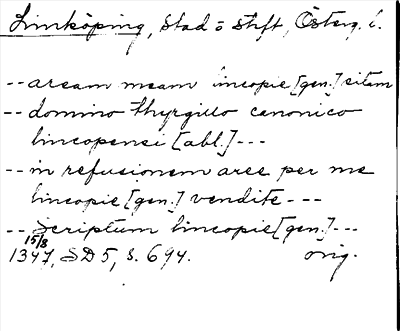 Linköping, stad o stift, Österg. l.
-- aream meam lincopie [gen.] sitam
-- domino Thyrgillo canonico
lincopensi [abl.] ---
-- in refusionem aree per me
lincopie [gen.] vendite ---
-- Scriptum lincopie [gen.] ---
15/8
1347, SD 5, s. 694. orig.